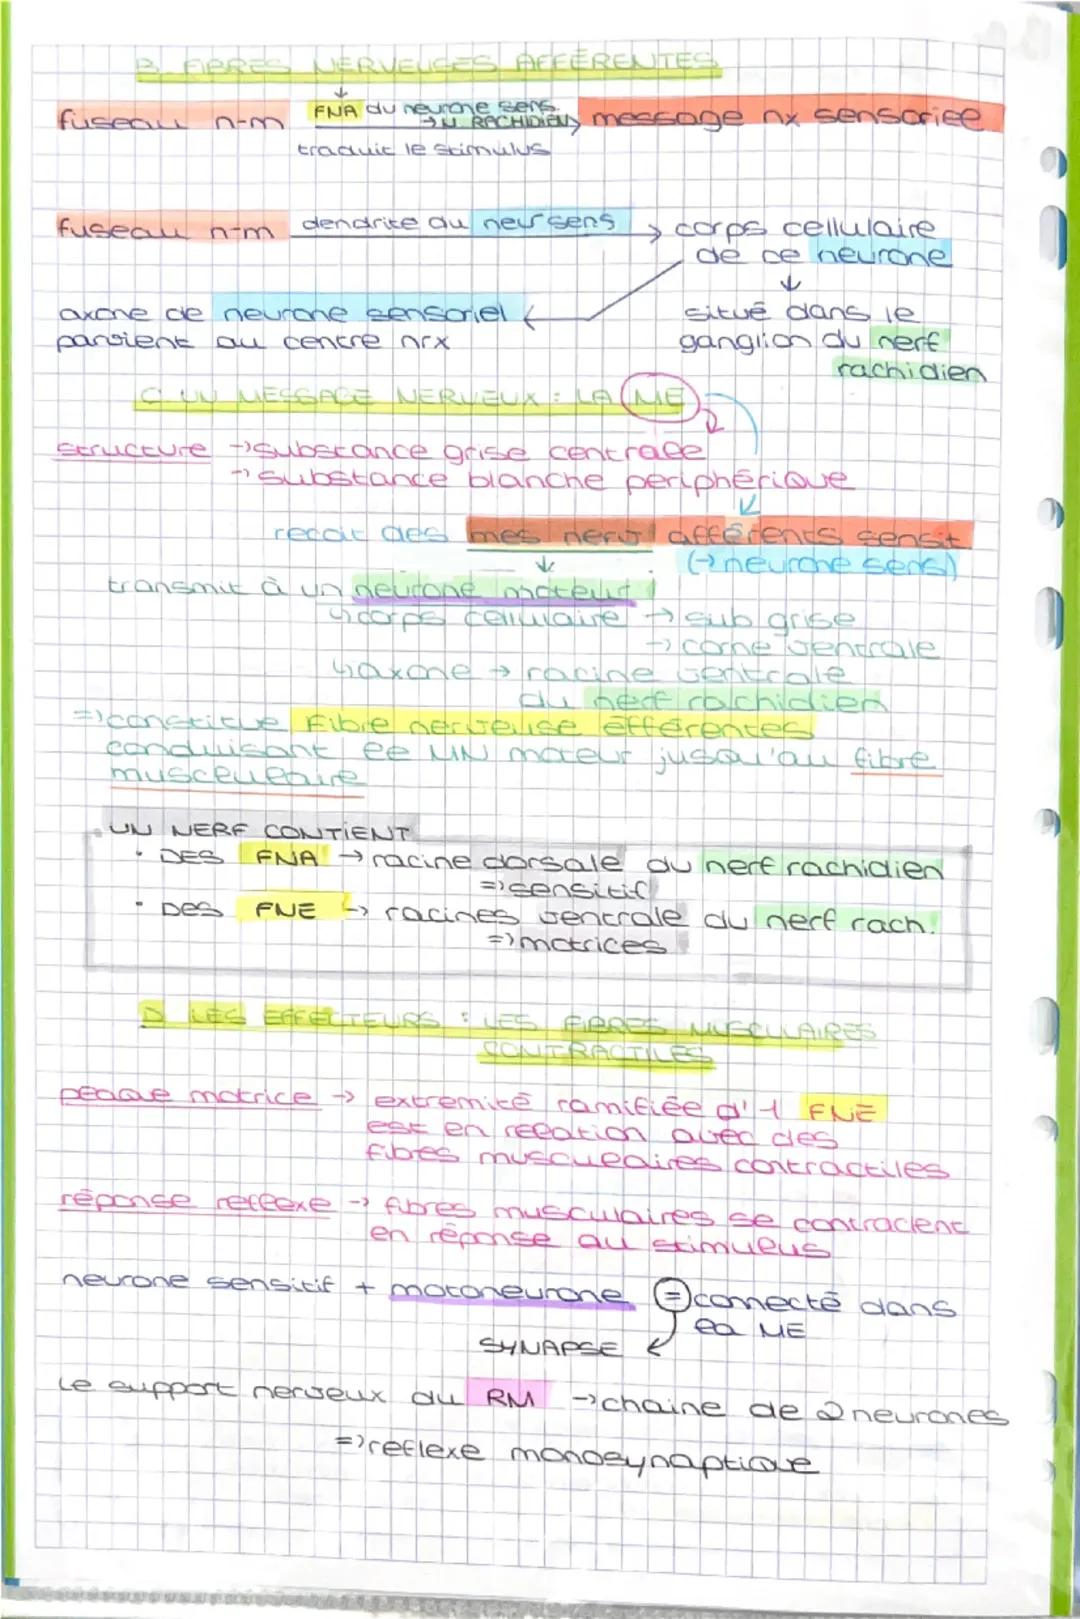 B_ FIBRES NERVEUSES AFFÉRENTES
↓
fuseau n-m FNA du neurone sens. →N RACHIDIEN → message nx sensoriel
traduit le stimulus
fuseau n-m dendrite du neur sens → corps cellulaire
de ce neurone
↓
axone de neurone sensoriel ← situé dans le
parvient au centre nrx ganglion du nerf
rachidien
C UN MESSAGE NERVEUX : LA ME
structure →substance grise centrale
→substance blanche periphérique
recoit des mes nerv afférents sensit
↓ (→neurone sens)
transmit à un neurone moteur
↳corps cellulaire → sub grise
→ corne ventrale
↳axone → racine ventrale
du nerf rachidien
=>constitue Fibre nerveuse efférentes
conduisant le MN moteur jusqu'au fibre
musculaire
UN NERF CONTIENT
• DES FNA → racine dorsale du nerf rachidien
=>sensitif
• DES FNE → racines ventrale du nerf rach.
=>motrices
D LES EFFECTEURS : LES FIBRES MUSCULAIRES
CONTRACTILES
plaque motrice → extremité ramifiée d'1 FNE
est en relation avec des
fibres musculaires contractiles
réponse reflexe → fibres musculaires se contractent
en réponse au stimulus
neurone sensitif + motoneurone = connecté dans
la ME
SYNAPSE ←
Le support nerveux du RM →chaine de 2 neurones
=>reflexe monosynaptique